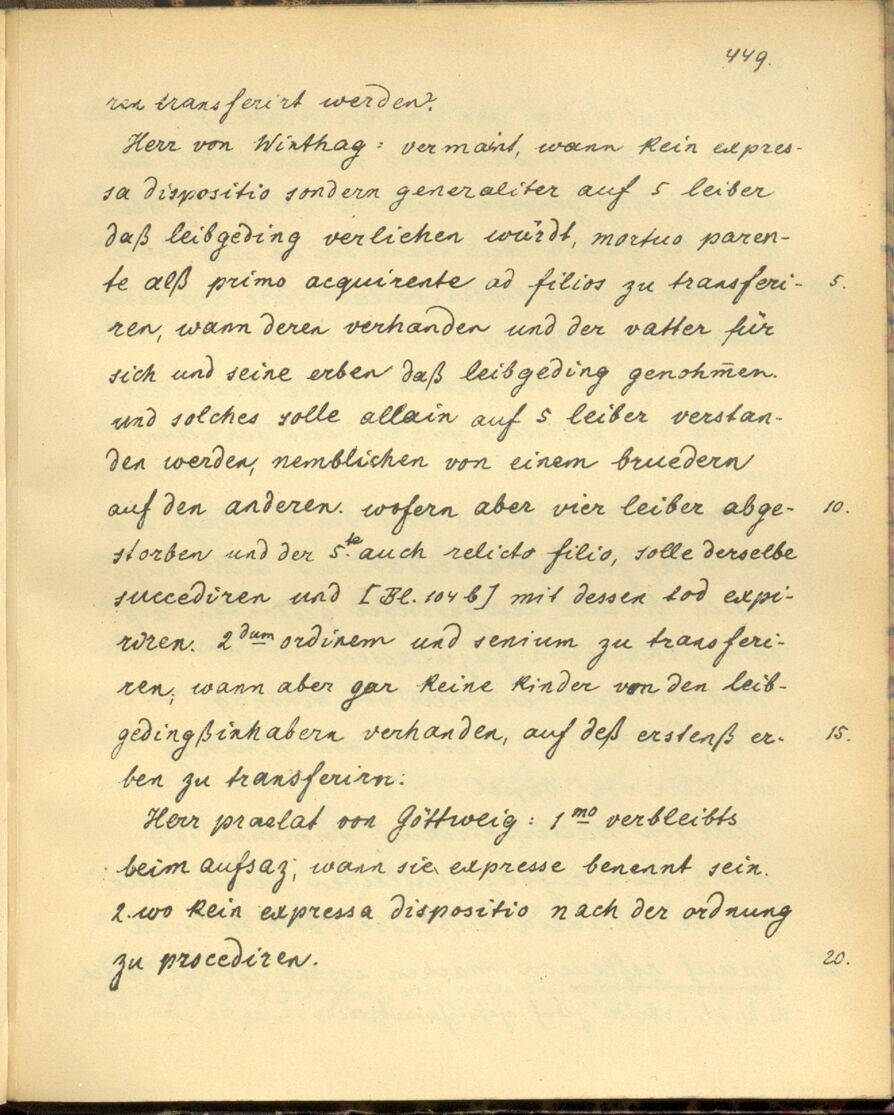 449.
ren transferirt werden?
Herr von Winthag: vermaint, wann kein expres-
sa dispositio sondern generaliter auf 5 leiber
daß leibgeding verlichen würdt, mortuo paren-
te alß primo acquirente ad filios zu transferi- 5.
ren, wann deren verhanden und der vatter für
sich und seine erben daß leibgeding genohm̄en.
und solches solle allain auf 5 leiber verstan-
den werden, nemblichen von einem bruedern
auf den anderen. wofern aber vier leiber abge- 10.
storben und der 5.te auch relicto filio, solle derselbe
succediren und [Bl. 104 b] mit dessen tod expi-
riren. 2dum ordinem und senium zu transferi-
ren; wann aber gar keine kinder von den leib-
gedingßinhabern verhanden, auf deß erstenß er- 15.
ben zu transferirn:
Herr praelat von Göttweig: 1mo verbleibts
beim aufsaz; wann sie expresse benennt sein.
2. wo kein expressa dispositio nach der ordnung
zu procediren. 20.